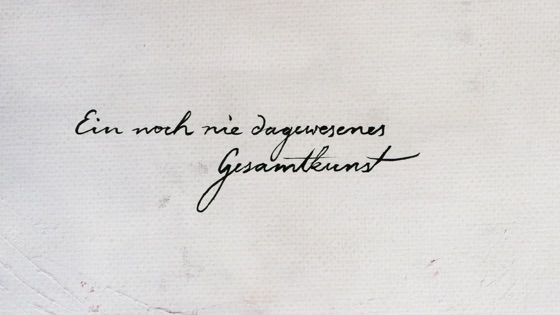 Ein noch nie dagewesenes
Gesamtkunst